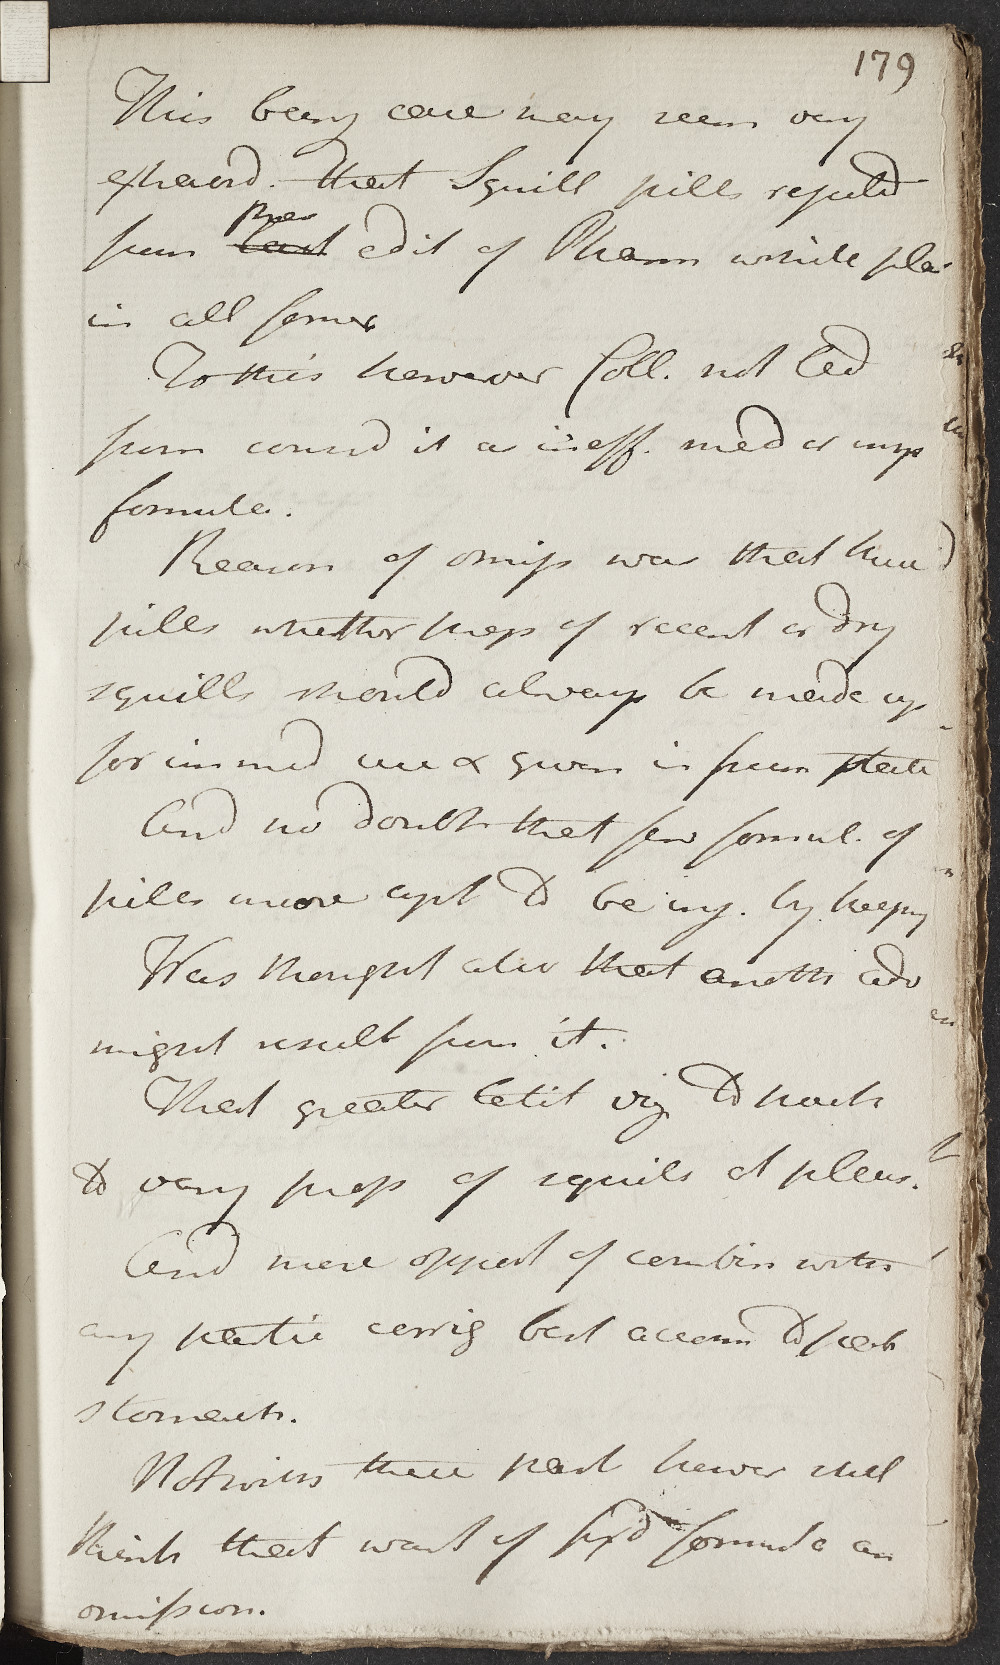 179
This being case may seem very
extraord. that Squill pills rejected
from Pres last edit of Pharm while pla
in all former
To this however Coll. not led
from consid it as ineff. med or imp
formula.
Reason of omiss was that
pills whether prep of recent or dry
squills should always be made up
for immed use & given in recent state
And no doubt that few formul. of
pills more apt to be inj. by keepg
Was thought also that anoth adv
might result from it.
That greater latit viz to pract
to vary prep of squils at pleas.
And more opport of combin with
any partic corrig best accom to part
stomach.
Notwith these past howev still
think that want of fix'd formula an
omission.